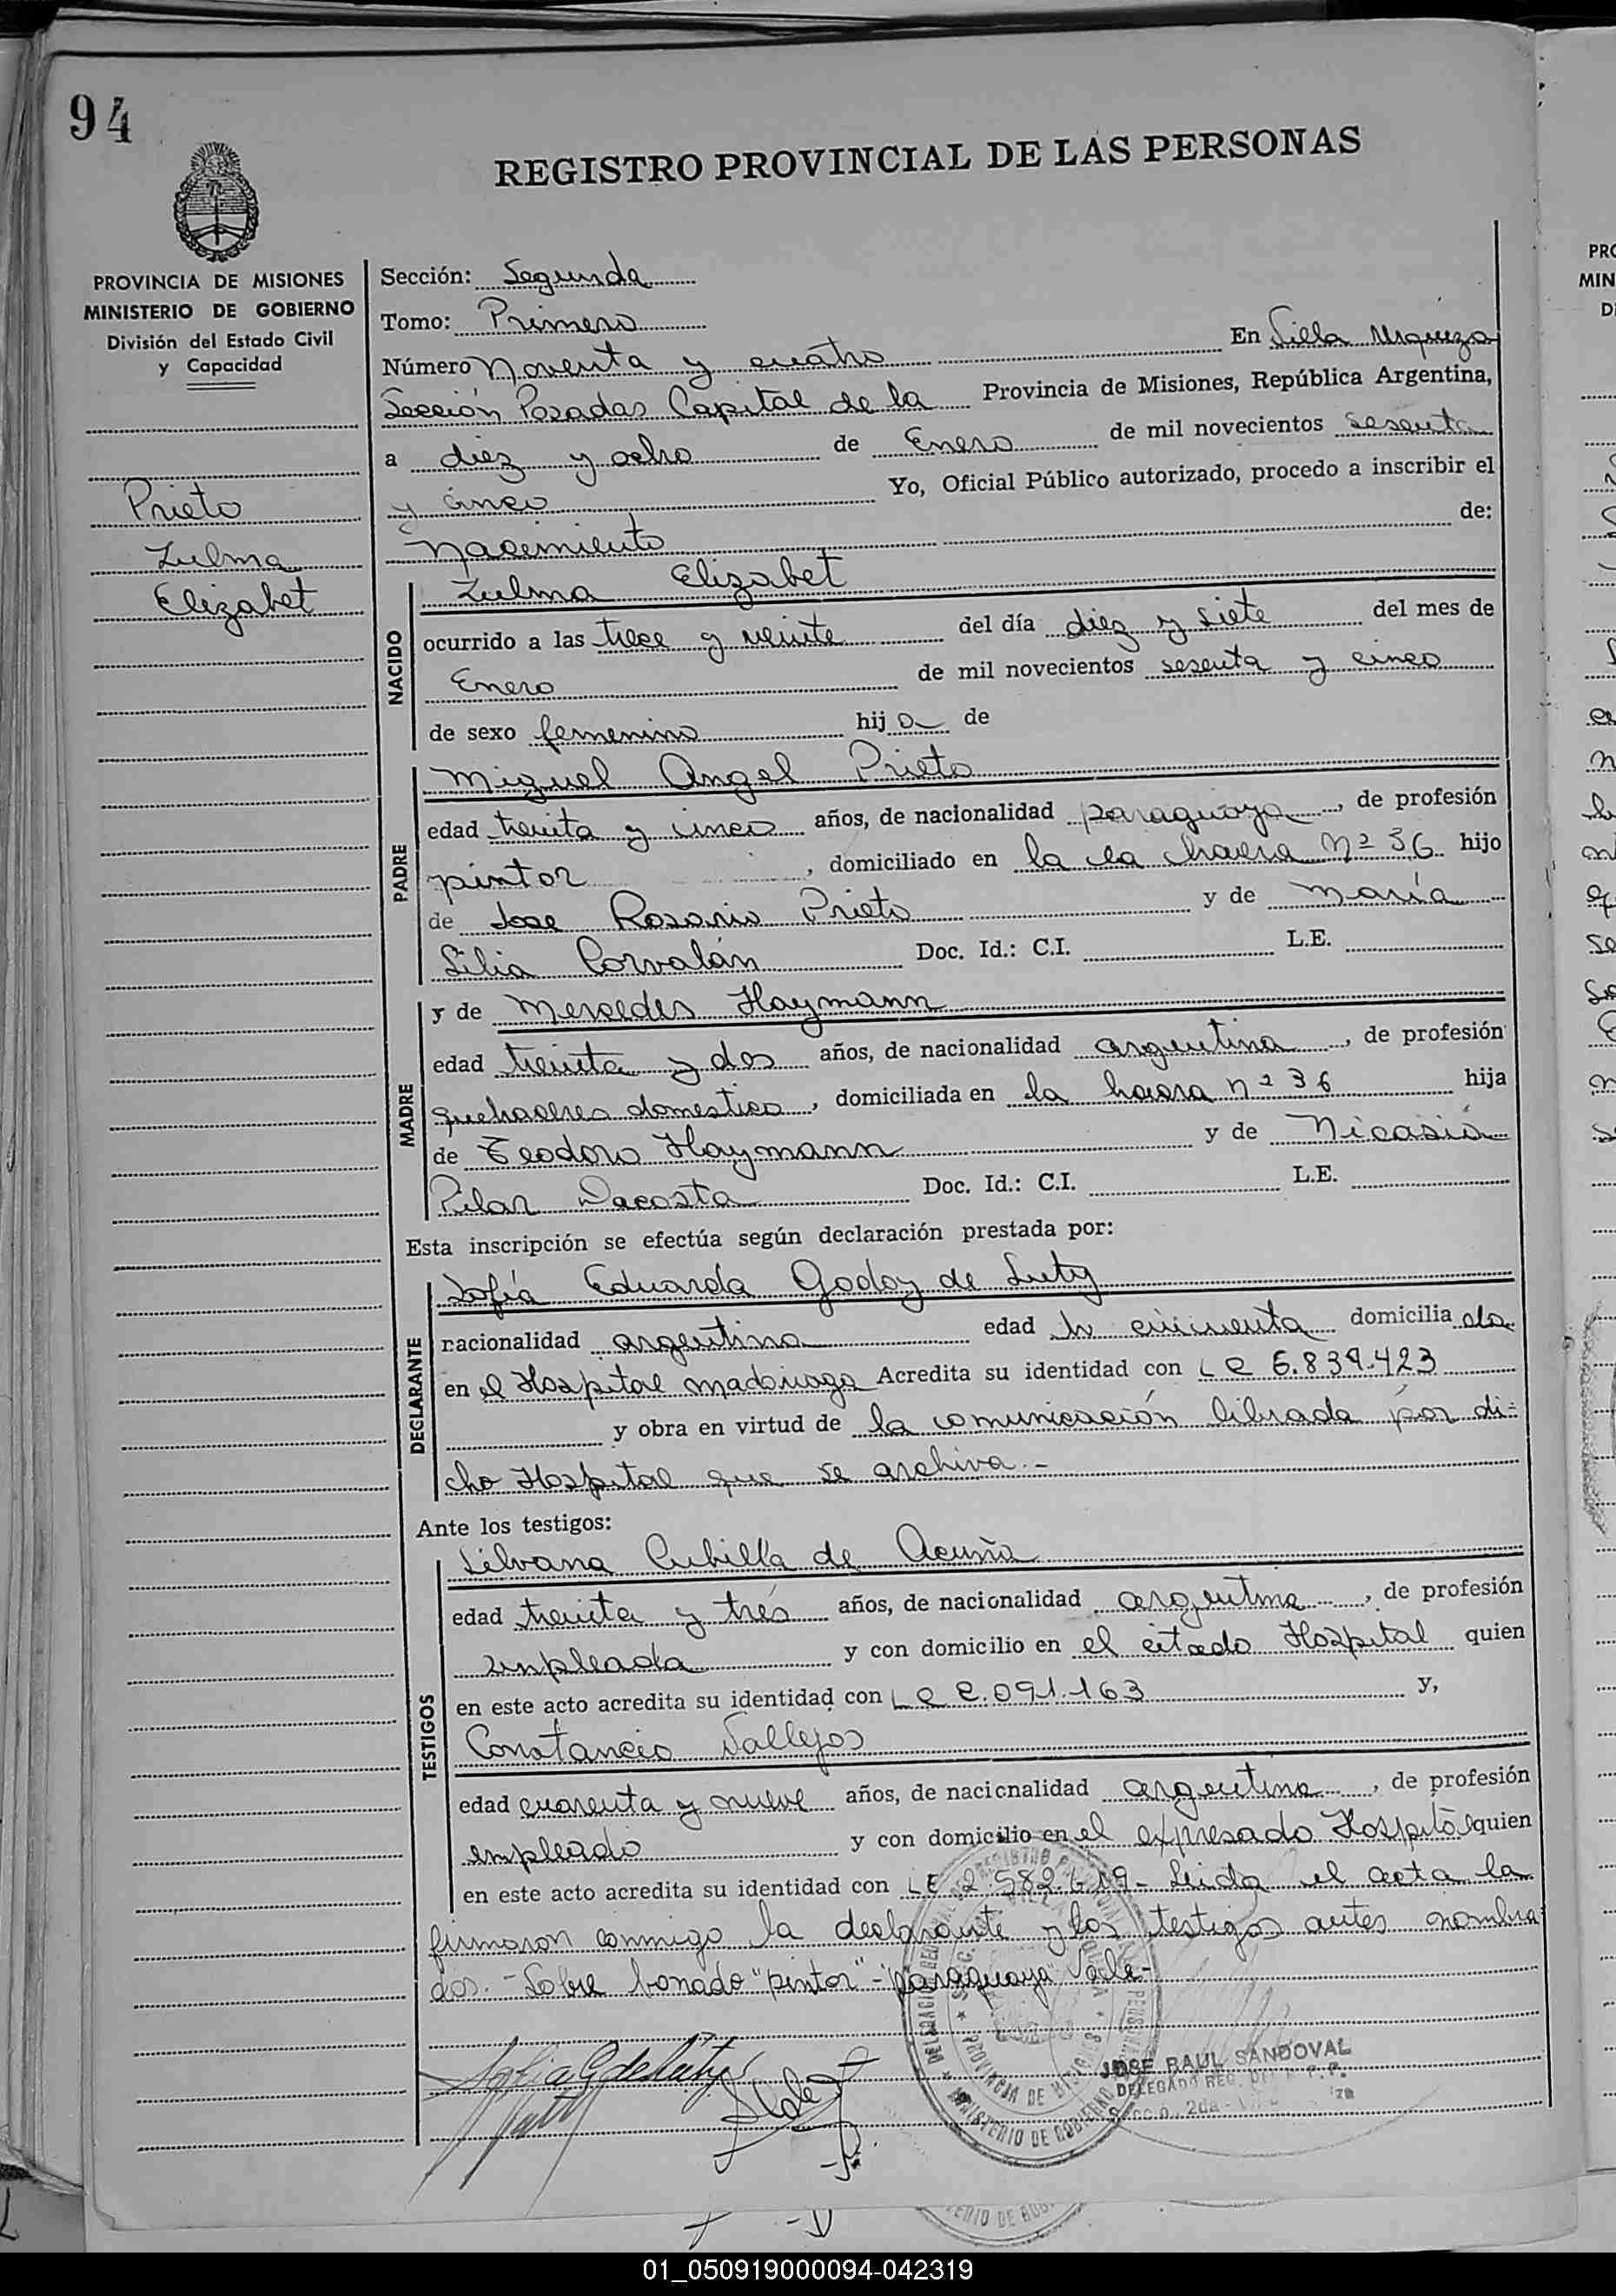 94
REGISTRO PROVINCIAL DE LAS PERSONAS
PROVINCIA DE MISIONES
MINISTERIO DE GOBIERNO
División del Estado Civil
y Capacidad
Prieto
Zulma
Elizabet
Sección: Segunda
Tomo: Primero
Número Noventa y cuatro En Villa Urquiza
Sección Posadas Capital de la Provincia de Misiones, República Argentina,
a diez y ocho de Enero de mil novecientos sesenta
y cinco Yo, Oficial Público autorizado, procedo a inscribir el
nacimiento de:
NACIDO
Zulma Elizabet
ocurrido a las trece y veinte del día diez y siete del mes de
Enero de mil novecientos sesenta y cinco
de sexo femenino hija de
PADRE
Miguel Angel Prieto
edad treinta y cinco años, de nacionalidad paraguaya, de profesión
pintor, domiciliado en la chacra Nº 36 hijo
de Jose Rosario Prieto y de María
Lilia Corvalán Doc. Id.: C.I. L.E.
MADRE
y de Mercedes Haymann
edad treinta y dos años, de nacionalidad argentina, de profesión
quehaceres domestico, domiciliada en la chacra nº 36 hija
de Teodoro Haymann y de Nicasia
Pilar Dacosta Doc. Id.: C.I. L.E.
Esta inscripción se efectúa según declaración prestada por:
DECLARANTE
Sofía Eduarda Godoy de Luty
nacionalidad argentina edad cincuenta domiciliada
en el Hospital Madariaga Acredita su identidad con LC 6.839.423
y obra en virtud de la comunicación librada por di-
cho Hospital que se archiva.-
Ante los testigos:
TESTIGOS
Silvana Cubilla de Acuña
edad treinta y tres años, de nacionalidad argentina, de profesión
empleada y con domicilio en el citado Hospital quien
en este acto acredita su identidad con LC 2.091.163 y,
Constancio Vallejos
edad cuarenta y nueve años, de nacionalidad argentina, de profesión
empleado y con domicilio en el expresado Hospital quien
en este acto acredita su identidad con LE Leida el acta la
firmaron conmigo la declarante y los testigos antes nombra
dos.- Sobre borrado "pintor"-"paraguaya" Vale-
JOSE RAUL SANDOVAL
DELEGADO REG.
PROVINCIA DE MISIONES
MINISTERIO DE GOBIERNO
01_050919000094-042319